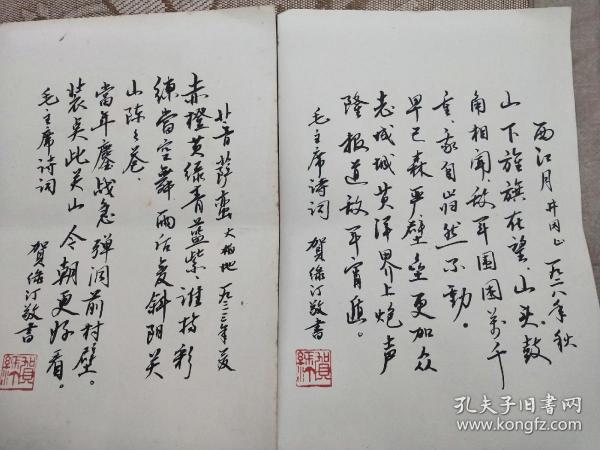 西江月 井冈山 一九二八年秋
山下旌旗在望,山头鼓
角相闻。敌军围困万千
重,我自岿然不动。
早已森严壁垒,更加众
志成城。黄洋界上炮声
隆,报道敌军宵遁。
毛主席诗词 賀绿汀敬書
菩萨蛮 大柏地 一九三三年夏
赤橙黄绿青蓝紫,谁持彩
練當空舞 雨后复斜阳,关
山陈々苍。
當年鏖战急,弹洞前村壁。
装点此关山,今朝更好看。
毛主席诗词
賀绿汀敬書
孔夫子旧书网
www.kongfz.com